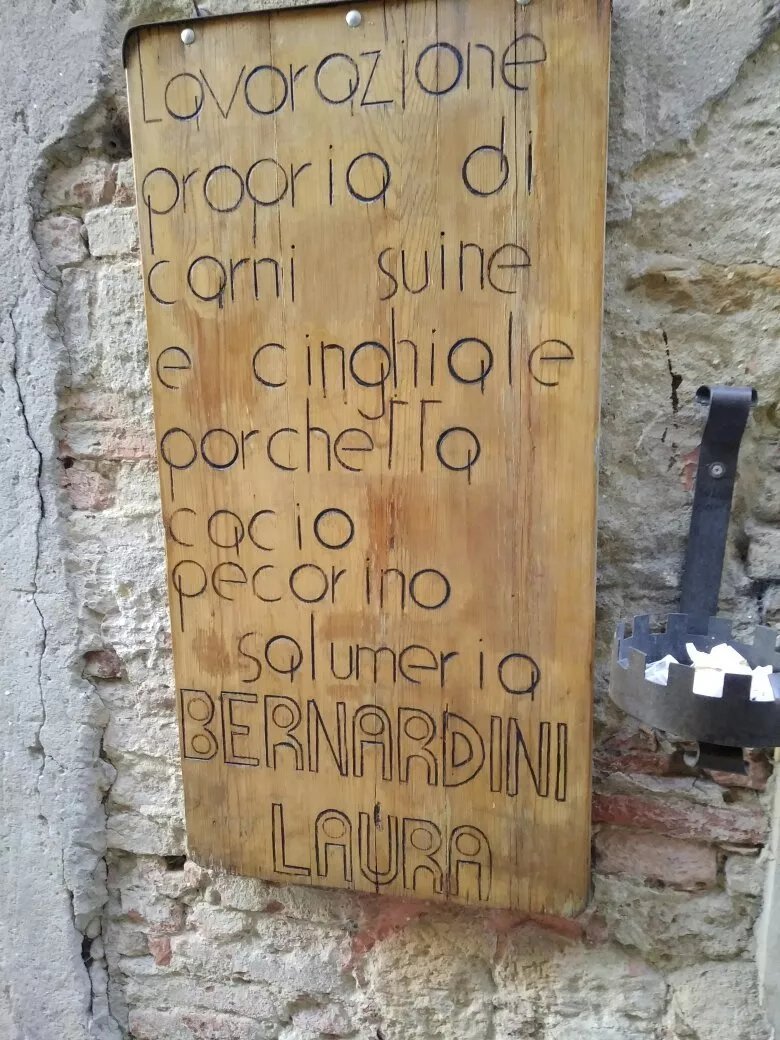 Lavorazione
propria di
carni suine
e cinghiale
porchetta
cacio
pecorino
salumeria
BERNARDINI
LAURA